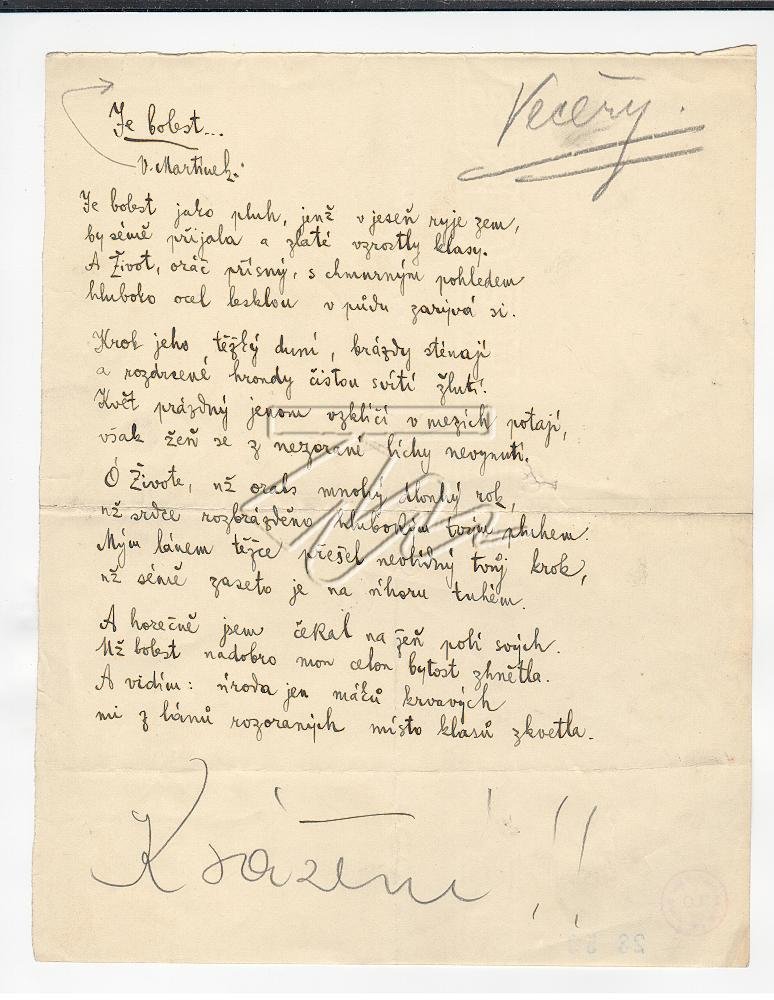 Večery.
Je bolest...
V. Martínek:
Je bolest jako pluh, jenž v jeseň ryje zem,
by sémě přijala a zlaté vzrostly klasy.
A Život, oráč přísný, s chmurným pohledem
hluboko ocel lesklou v půdu zarývá si.
Krok jeho těžký duní, brázdy sténají
a rozdrcené hroudy čistou svítí žlutí.
Květ prázdný jenom vzklíčí v mezích potají,
však žeň se z nezorané líchy nevynutí.
Ó Živote, už orals mnohý dlouhý rok,
už srdce rozbrázděno hlubokým tvým pluhem.
Mým lánem těžce přešel neoblidný tvůj krok,
už sémě zaseto je na úhoru tuhém.
A horečně jsem čekal na žeň polí svých.
Už bolest nadobro mou celou bytost zhnětla.
A vidím: úroda jen máků krvavých
mi z lánů rozoraných místo klasů zkvetla.
K sázení!!